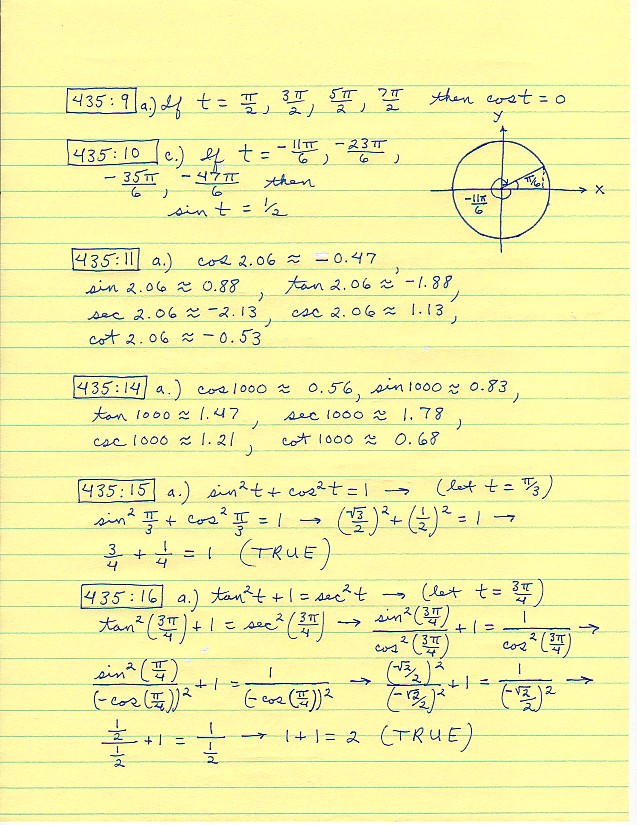 435:9 a.) If t = π/2, 3π/2, 5π/2, 7π/2 then cos t = 0
435:10 c.) If t = -11π/6, -23π/6,
-35π/6, -47π/6 then
sin t = 1/2
y
x
π/6
-11π/6
435:11 a.) cos 2.06 ≈ -0.47,
sin 2.06 ≈ 0.88, tan 2.06 ≈ -1.88,
sec 2.06 ≈ -2.13, csc 2.06 ≈ 1.13,
cot 2.06 ≈ -0.53
435:14 a.) cos 1000 ≈ 0.56, sin 1000 ≈ 0.83,
tan 1000 ≈ 1.47, sec 1000 ≈ 1.78,
csc 1000 ≈ 1.21, cot 1000 ≈ 0.68
435:15 a.) sin²t + cos²t = 1 → (let t = π/3)
sin² π/3 + cos² π/3 = 1 → (√3/2)² + (1/2)² = 1 →
3/4 + 1/4 = 1 (TRUE)
435:16 a.) tan²t + 1 = sec²t → (let t = 3π/4)
tan²(3π/4) + 1 = sec²(3π/4) → sin²(3π/4)/cos²(3π/4) + 1 = 1/cos²(3π/4) →
sin²(π/4)/(-cos(π/4))² + 1 = 1/(-cos(π/4))² → (√2/2)²/(-√2/2)² + 1 = 1/(-√2/2)² →
1/2/1/2 + 1 = 1/1/2 → 1 + 1 = 2 (TRUE)